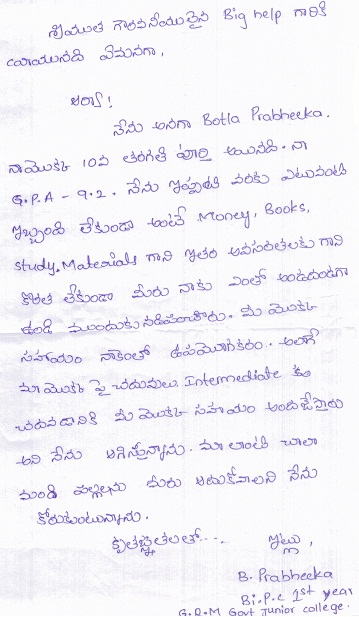 శ్రీయుత గౌరవనీయులైన Big help గారికి
వ్రాయునది ఏమనగా,
సర్!
నేను అనగా Botla Prabheeka.
నా యొక్క 10వ తరగతి పూర్తి అయినది. నా
G.P.A - 9.2. నేను ఇప్పటి వరకు ఎటువంటి
ఇబ్బంది లేకుండా అంటే Money, Books,
Study.Materials గాని ఇతర అవసరతలకు గాని
కొరత లేకుండా మీరు నాకు ఎంతో అండదండగా
ఉండి ముందుకు నడిపించారు. మీ యొక్క
సహాయం నాకెంతో ఉపయోగకరం. అలాగే
మా యొక్క పై చదువులు Intermediate కు
చదవడానికి మీ యొక్క సహాయం అందజేస్తారు
అని నేను ఆశిస్తున్నాను. మా లాంటి చాలా
మంది పిల్లలను మీరు ఆదుకోవాలని నేను
కోరుకుంటున్నాను.
కృతజ్ఞతలతో.... ఇట్లు,
B. Prabheeka
Bi.P.C 1st year
G.D.M Govt Junior college.